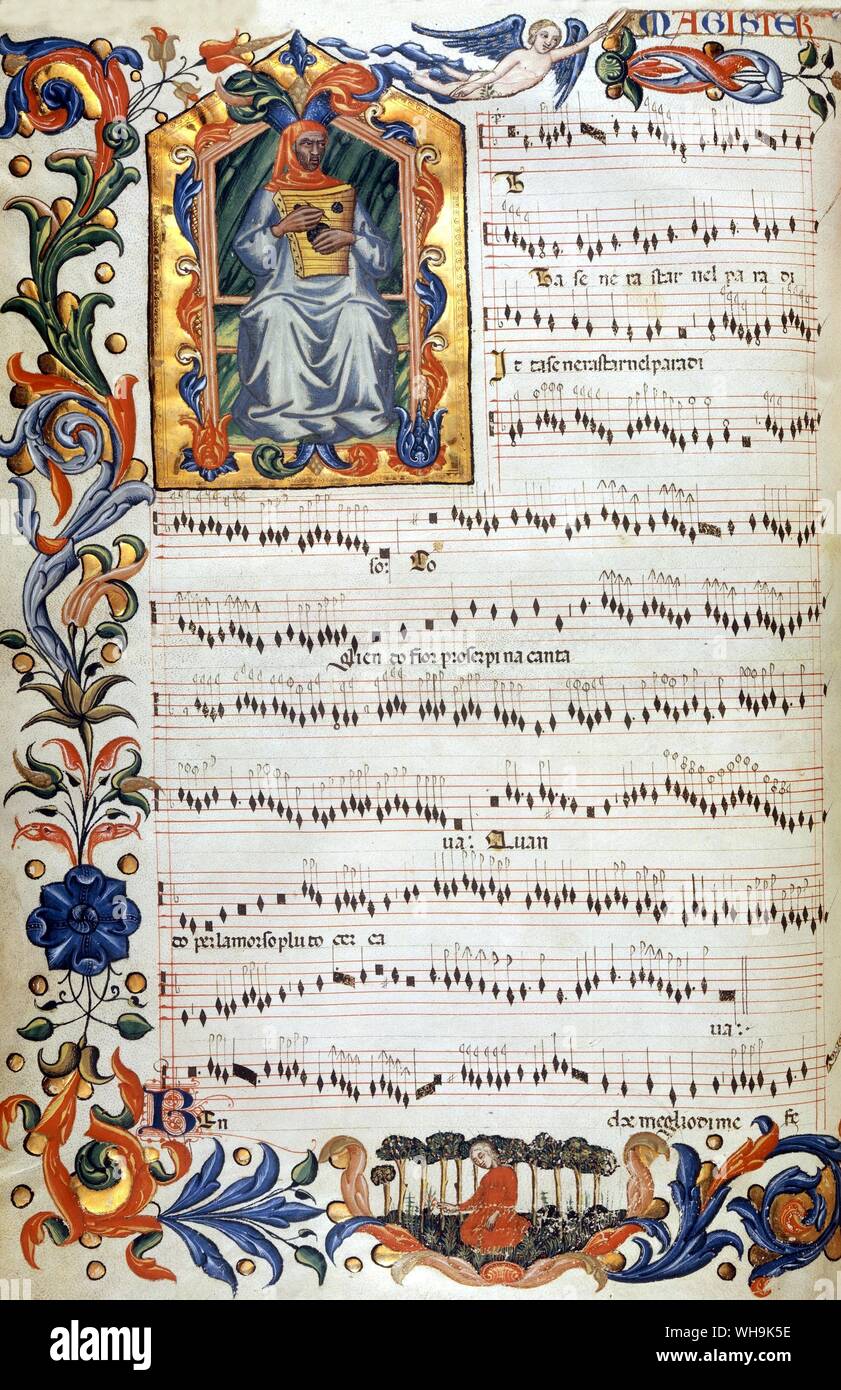 MAGISTER
B
Ta se ne ra star nel pa ra di
It tase nerastar nel paradi
so: Co
glien do fior proserpi na canta
ua: Quan
do per lamorso pluto cer ca
ua:
BEn che meglio di me fe
alamy
a
alamy
Image ID: WH9K5E
www.alamy.com